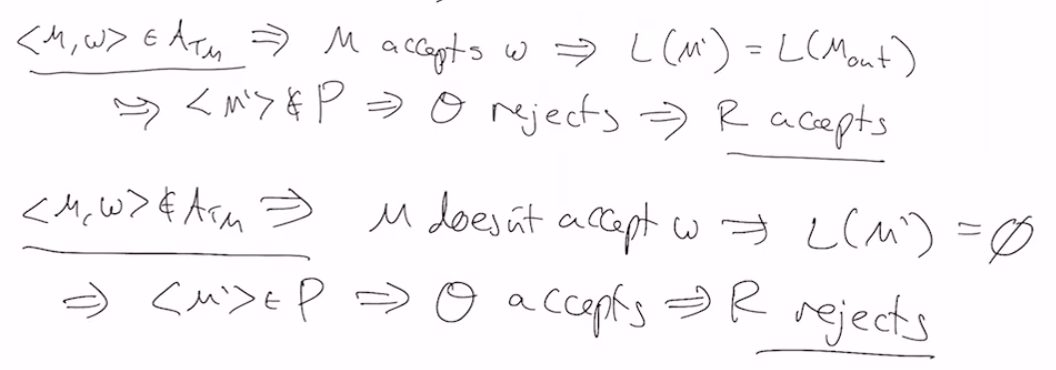 <M,w> ∈ A_TM ⇒ M accepts w ⇒ L(M') = L(M_out)
⇒ <M'> ∉ P ⇒ O rejects ⇒ R accepts
<M,w> ∉ A_TM ⇒ M doesn't accept w ⇒ L(M') = ∅
⇒ <M'> ∈ P ⇒ O accepts ⇒ R rejects